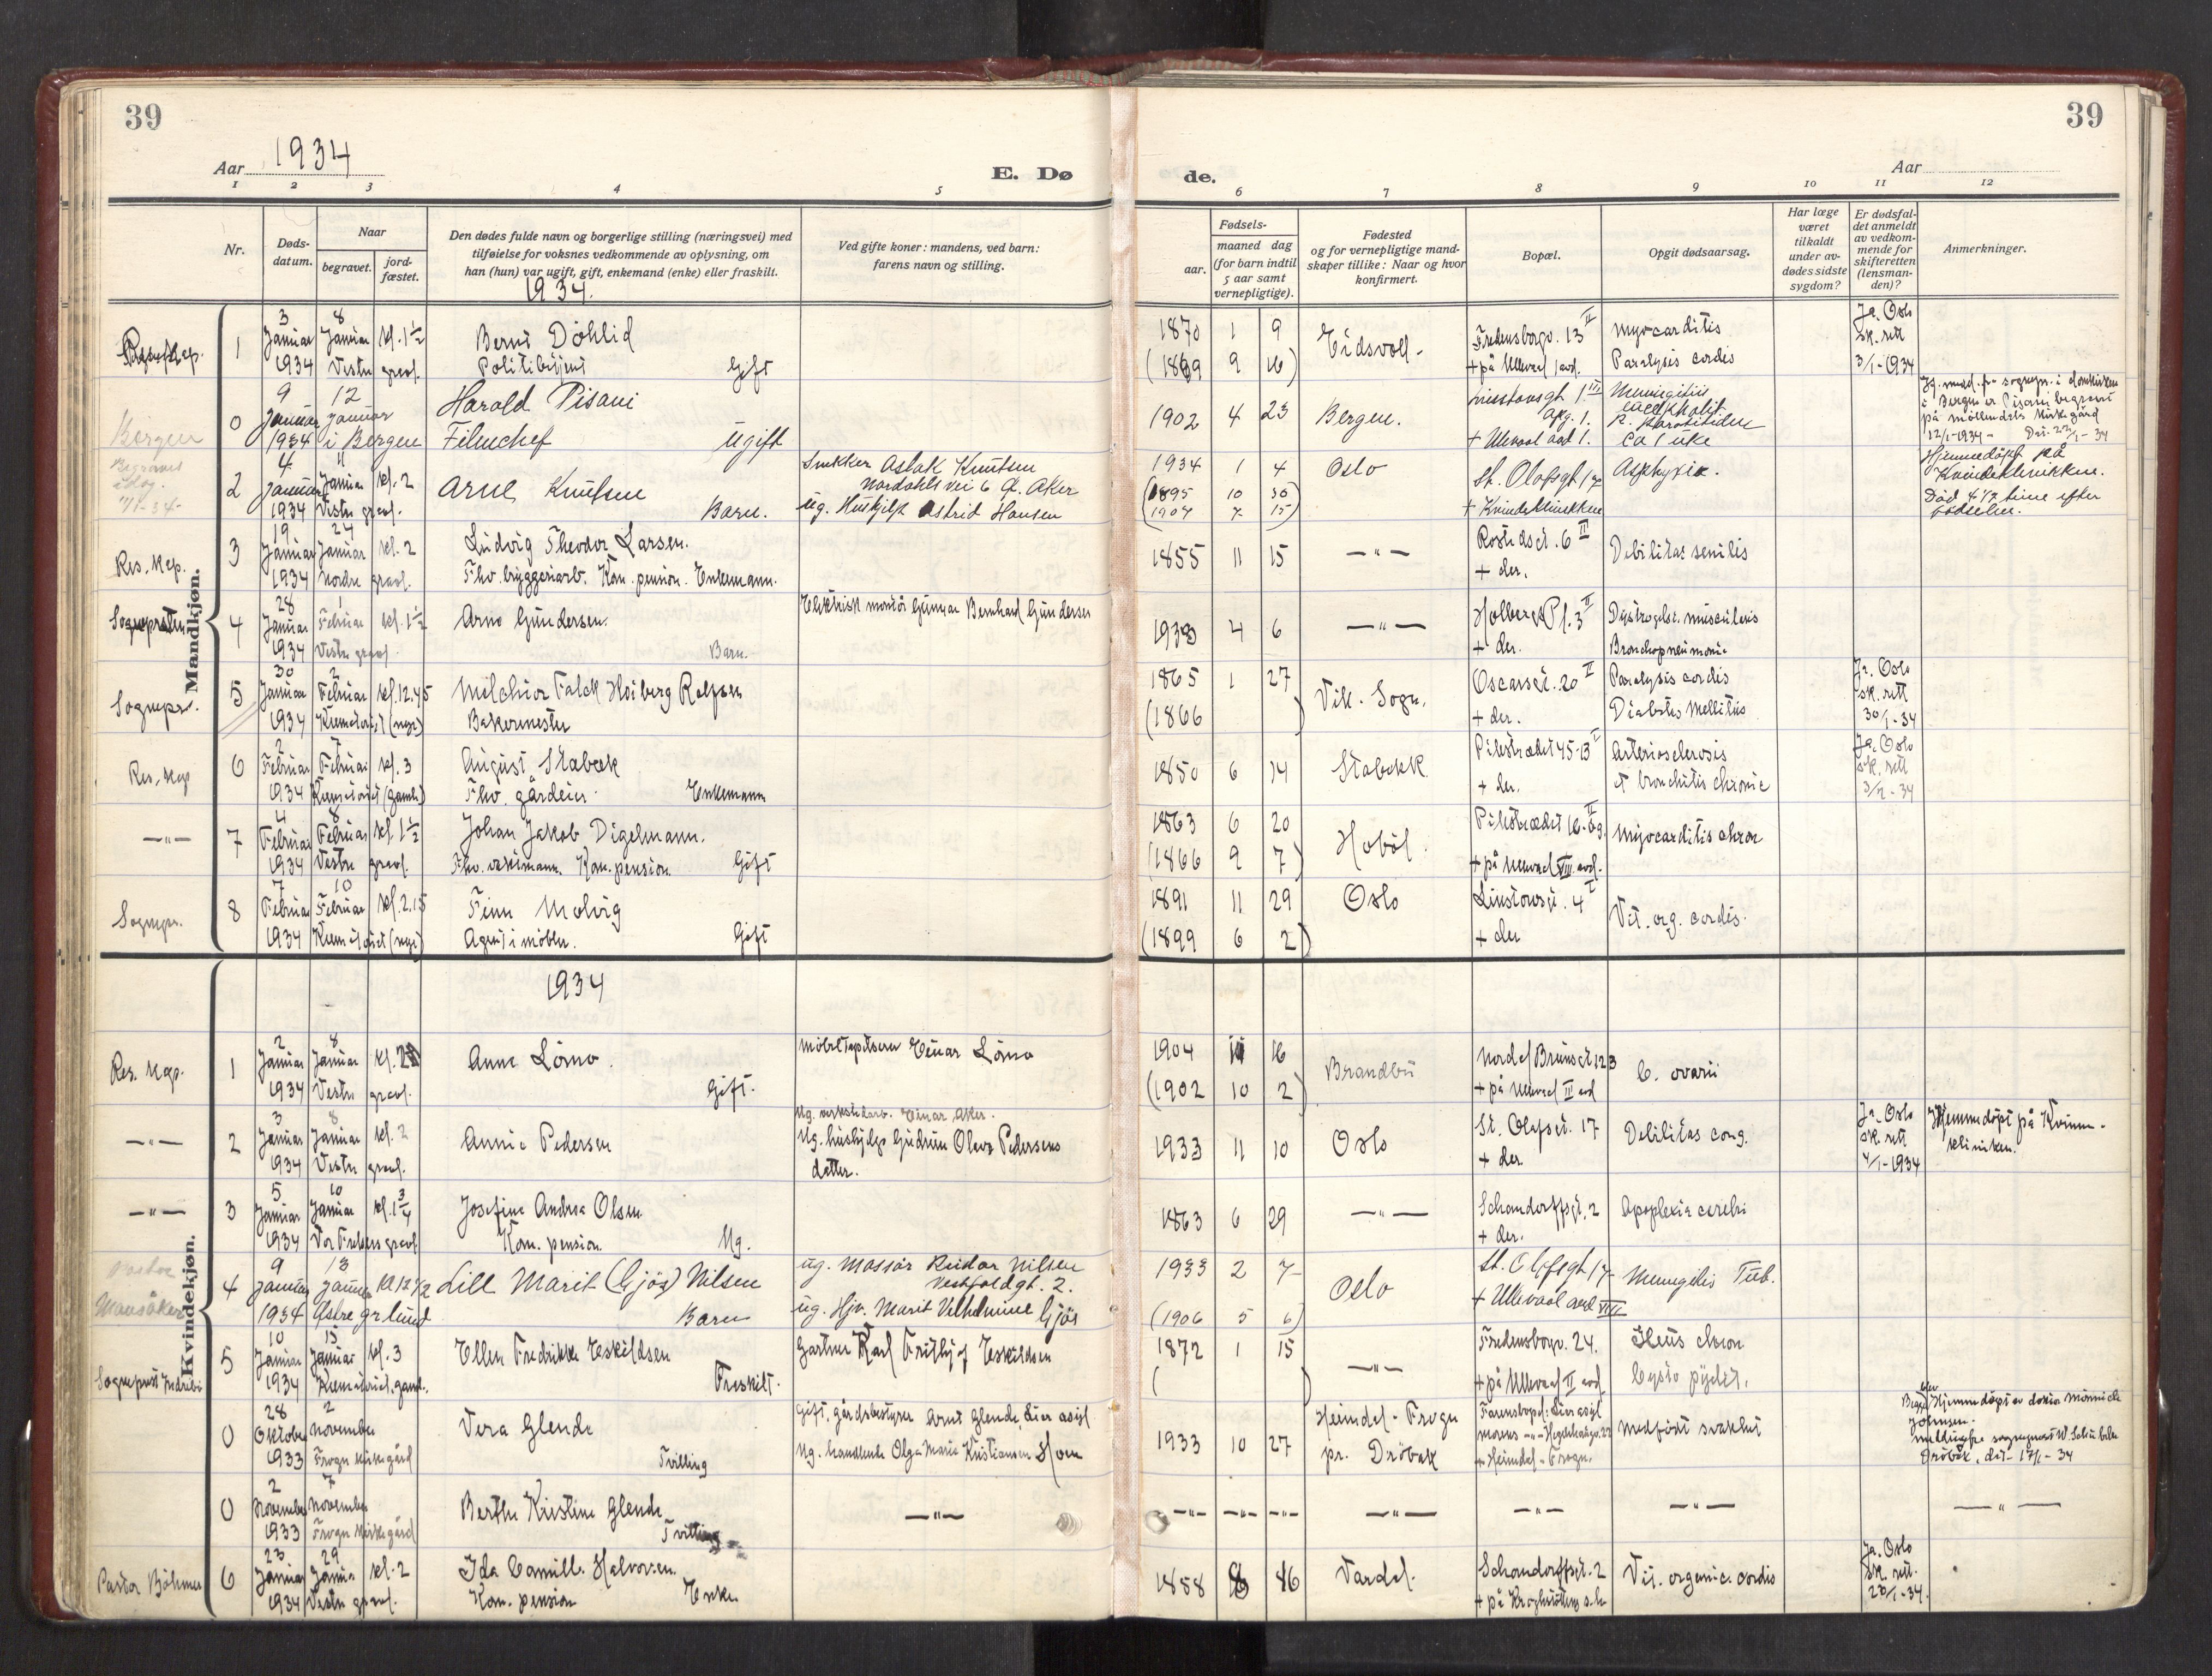 39
39
Aar 1934
E. Dø
de.
Aar
1 2 3 4 5 6 7 8 9 10 11 12
Nr.
Døds-
datum.
Naar
begravet.
jord-
fæstet.
Den dødes fulde navn og borgerlige stilling (næringsvei) med
tilføielse for voksnes vedkommende av oplysning, om
han (hun) var ugift, gift, enkemand (enke) eller fraskilt.
Ved gifte koner: mandens, ved barn:
farens navn og stilling.
Fødsels-
aar.
maaned dag
(for barn indtil
5 aar samt
vernepligtige).
Fødested
og for vernepligtige mand-
skaper tillike: Naar og hvor
konfirmert.
Bopæl.
Opgit dødsaarsag.
Har læge
været
tilkaldt
under av-
dødes sidste
sygdom?
Er dødsfal-
det anmeldt
av vedkom-
mende for
skifteretten
(lensman-
den)?
Anmerkninger.
1934.
Mandkjøn.
1
3 8
Januar Januar kl. 1 1/2
1934 Vestre gravl.
Bernt Döhlid
Politibetjent Gift
1870 1 9
(1869 9 16)
Eidsvoll
Fredensborgv. 13 II
+ på Ullevaal 1 avd.
Myocarditis
Paralysis cordis
Ja. Oslo
sk. rett
3/1-1934
Bergen
0
9 12
Januar Januar
1934 i Bergen
Harald Pisani
Filmchef Ugift
1902 4 23
Bergen.
+ Ullevaal avd 1.
ca 1 uke
12/1-1934 -
Begraves
idag.
11/1-34-
2
4 11
Januar Januar kl. 2
1934 Vestre gravl.
Arne Knutsen
Barn.
Snekker Aslak Knutsen
Nordahls vei 6 Ø. Aker
ug. Hushjelp Astrid Hansen
1934 1 4
(1895 10 30
1907 7 15)
Oslo
St. Olafsgt 17
+ Kvindeklinikken
Asphyxia.
Hjemmedöpt på
Kvindeklinikken.
Död 4 1/2 time efter
födselen.
Res. kap.
3
19 24
Januar Januar kl. 2
1934 Nordre gravl.
Ludvig Theodor Larsen.
Fhv. bryggeriarb. Kom. pension. Enkemann.
1855 11 15
— " —
Rostedsgt. 6 II
+ der.
Debilitas senilis
Sognepresten
4
28 1
Januar Februar kl. 1 1/2
1934 Vestre gravl.
Arno Gundersen.
Barn.
Elektrisk montör Gunnar Bernhard Gundersen
1933 4 6
— " —
Holbergs Pl. 3 II
+ der.
Bronchopneumonie
Sognepr.
5
30 2
Januar Februar kl. 12.45
1934 Krematoriet (nye)
Melchior Falck Hoiberg Rolfsen
Bakermester
1865 1 27
(1866 )
Vik. Sogn.
Oscarsgt. 20 II
+ der.
Paralysis cordis
Diabetes Mellitus
Ja. Oslo
sk. rett
30/1-34
Res. kap
6
2 7
Februar Februar kl. 3
1934 Krematoriet (gamle)
August Stabæk
Fhv. gårdeier. Enkemann
1850 6 14
Stabekk
Pilestrædet 45-B I
+ der.
Arteriosclerosis
et bronchitis chronic
Ja. Oslo
sk. rett
3/2-34
— " —
7
4 8
Februar Februar kl. 1 1/2
1934 Vestre gravl.
Johan Jakob Digelmann.
Kom. pension Gift
1863 6 20
(1866 9 7)
Hobøl.
+ på Ullevaal VIII avd.
Myocarditis chron
Sognepr.
8
7 10
Februar Februar kl. 2.15
1934 Krematoriet (nye)
Finn Molvig
Agent i möbler. Gift
1891 11 29
(1899 6 2)
Oslo
Linstowsgt. 4 I
+ der
Vit. org. cordis.
Kvindekjøn.
1934
Res. kap.
1
2 8
Januar Januar kl. 2
1934 Vestre gravl.
Anna Lömo.
Gift.
Möbeltapetserer Einar Lömo
1904 11 16
(1902 10 2)
Brandbu
Nordal Brunsgt. 12 3
+ på Ullevaal III avd
C. ovarii
— " —
2
3 8
Januar Januar kl. 2
1934 Vestre gravl.
Annie Pedersen
Ug. verkstedarb. Einar Aker.
Ug. hushjelp Gudrun Olava Pedersens
datter.
1933 11 10
Oslo
St. Olafsgt. 17
+ der.
Debilitas cong.
Ja. Oslo
sk. rett
4/1-1934
Hjemmedöpt på Kvinne-
kliniken.
— " —
3
5 10
Januar Januar kl. 1 3/4
1934 Vor Frelsers gravl.
Josefine Andrea Olsen
Kom. pension. Ug.
1863 6 29
— " —
Schandorffsgt. 2
+ der.
Apoplexia cerebri
4
9 13
Januar Januar kl 12 1/2
1934 Østre gr lund
Lill Marit (Gjös) Nilsen
Barn
ug. Massör Reidar Nilsen
Vestfoldgt. 2.
ug. Hjv. Marit Vilhelmine Gjös
1933 2 7
(1906 5 6)
Oslo
St. Olafsgt 17
+ Ullevaal avd VIII
Meningitis Tub.
5
10 15
Januar Januar kl. 3
1934 Krematoriet, gamle.
Ellen Fredrikke Eskildsen
Fraskilt.
Gartner Karl Frithjof Eskildsen
1872 1 15
( )
— " —
Fredensborgv. 24.
+ på Ullevaal II avd.
Ileus chron
Cysto pyelit.
0
28 2
Oktober november
1933 Frogn kirkegård
Vera Glende
Tvilling
Gift. gårdsbestyrer Arnt Glende, Lier asyl
Ug. Olga Marie Kristiansen Hoen
1933 10 27
Heimdal - Frogn
pr. Dröbak
+ Heimdal - Frogn.
Medfödt svakhet
Dröbak, dat- 17/1-34
0
2 7
November November
1933 Frogn kirkegård
Berthe Kristine Glende
Tvilling
— " —
— " — — " — — " —
— " —
— " —
— " —
— " —
Pastor Böhmer
6
23 29
Januar Januar kl. 2
1934 Vestre gravl.
Ida Camilla Halvorsen.
Kom. pension Enke
1858 8 16
Vardal.
Schandorffsgt. 2
Vit. organic. cordis
Ja. Oslo
sk. rett.